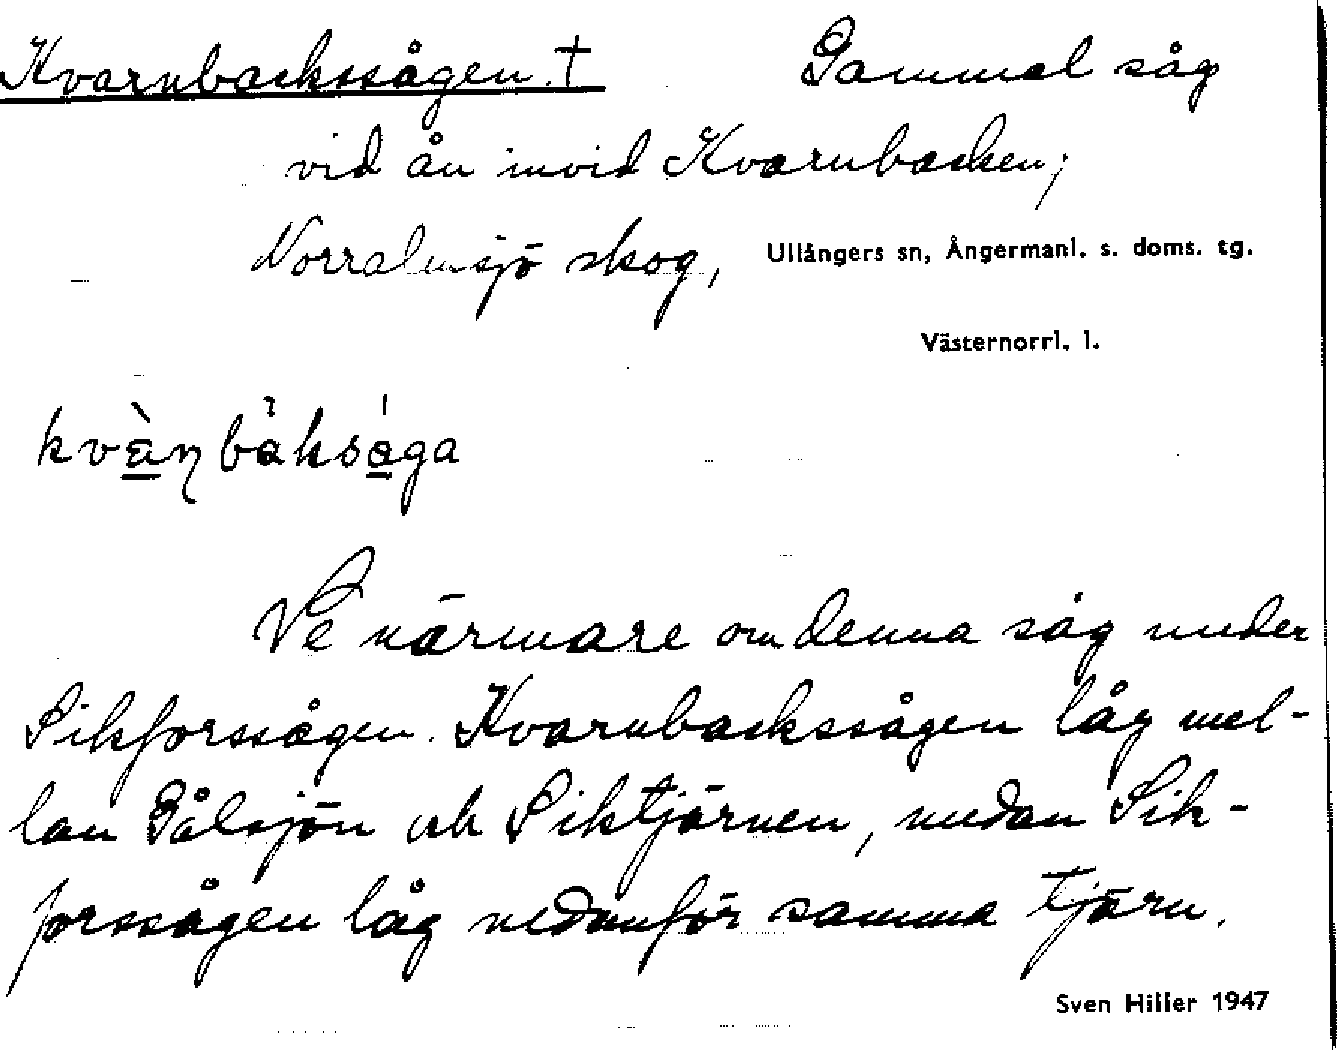 Kvarnbackssågen. † Gammal såg
vid ån invid Kvarnbacken;
Norralmsjö skog, Ullångers sn, Ångermanl. s. doms. tg.
Västernorrl. l.
kvànbàksága
Se närmare om denna såg under
Sikforssågen. Kvarnbackssågen låg mel-
lan Gålsjön och Siktjärnen, medan Sik-
forssågen låg nedanför samma tjärn.
Sven Hiller 1947